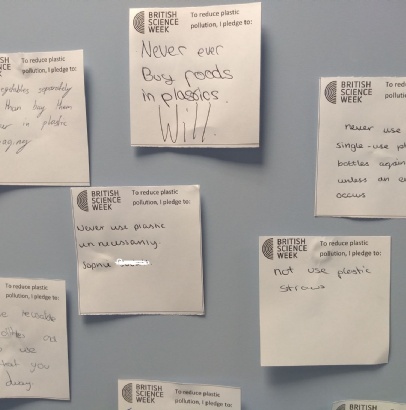 BRITISH
SCIENCE
WEEK
To reduce plastic
pollution, I pledge to:
Never ever
Buy foods
in plassics.
Will.
To reduce plastic
pollution, I pledge to:
separately
than buy them
in plastic
BRITISH
SCIENCE
WEEK
To reduce
pollution, I p
never use
single-use
bottles again
unless an
occurs
BRITISH
SCIENCE
WEEK
To reduce plastic
pollution, I pledge to:
Never use plastic
Sophie
BRITISH
SCIENCE
WEEK
To reduce plastic
pollution, I pledge to:
not use plastic
straws
To reduce plastic
pollution, I pledge to:
reusable
as
what you
BRITISH
SCIENCE
WEEK
To reduce plastic
pollution, I pledge to:
BRITISH